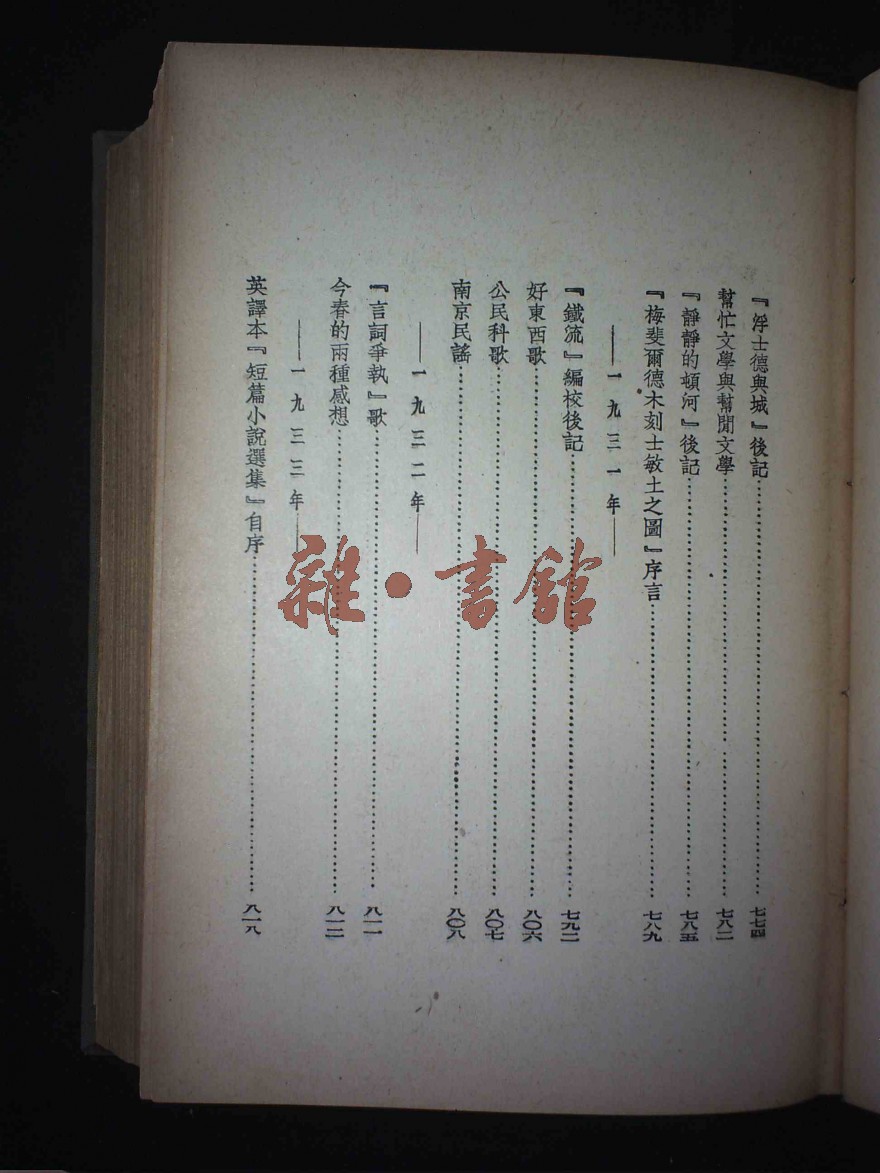 『浮士德與城』後記……七七四
幫忙文學與幫閒文學……七八二
『靜靜的頓河』後記……七八五
『梅斐爾德木刻士敏土之圖』序言……七八九
——一九三一年——
『鐵流』編校後記……七九二
好東西歌……八〇六
公民科歌……八〇七
南京民謠……八〇八
——一九三二年——
『言詞爭執』歌……八一一
今春的兩種感想……八一三
——一九三三年——
英譯本『短篇小說選集』自序……八一八
雜·書館